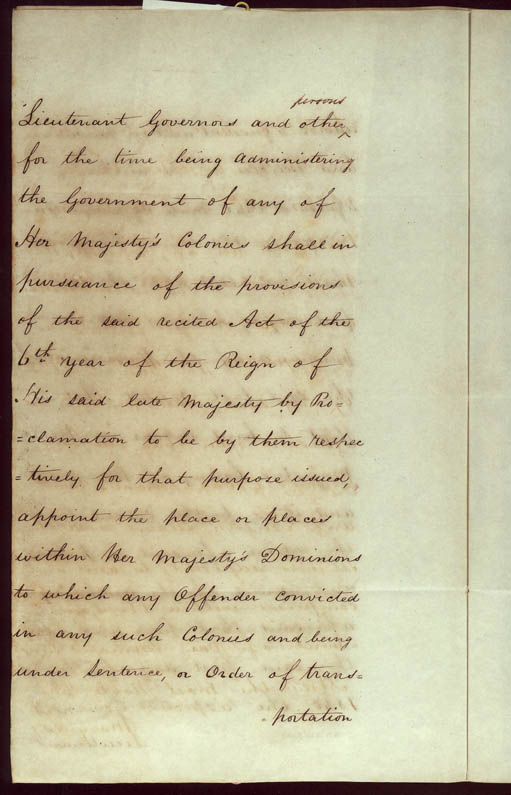 persons
Lieutenant Governors and other ^
for the time being administering
the Government of any of
Her Majesty's Colonies shall in
pursuance of the provisions
of the said recited Act of the
6th year of the Reign of
His said late Majesty by Pro=
=clamation to be by them respec
=tively for that purpose issued,
appoint the place or places
within Her Majesty's Dominions
to which any Offender convicted
in any such Colonies and being
under Sentence, or Order of trans=
-portation